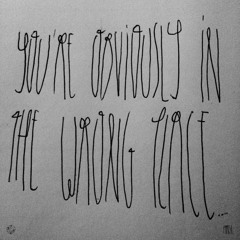 YOU'RE OBVIOUSLY IN
THE WRONG PLACE...